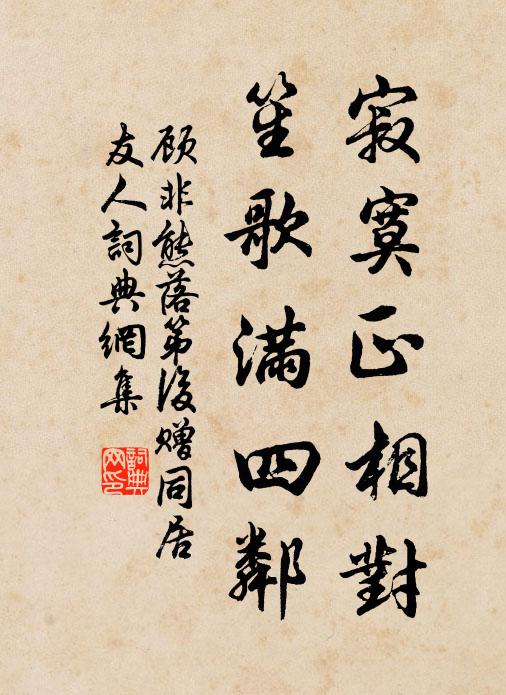 寂寞正相對
笙歌滿四鄰
顾非熊落第後贈同居
友人詞典網集
詞典网印